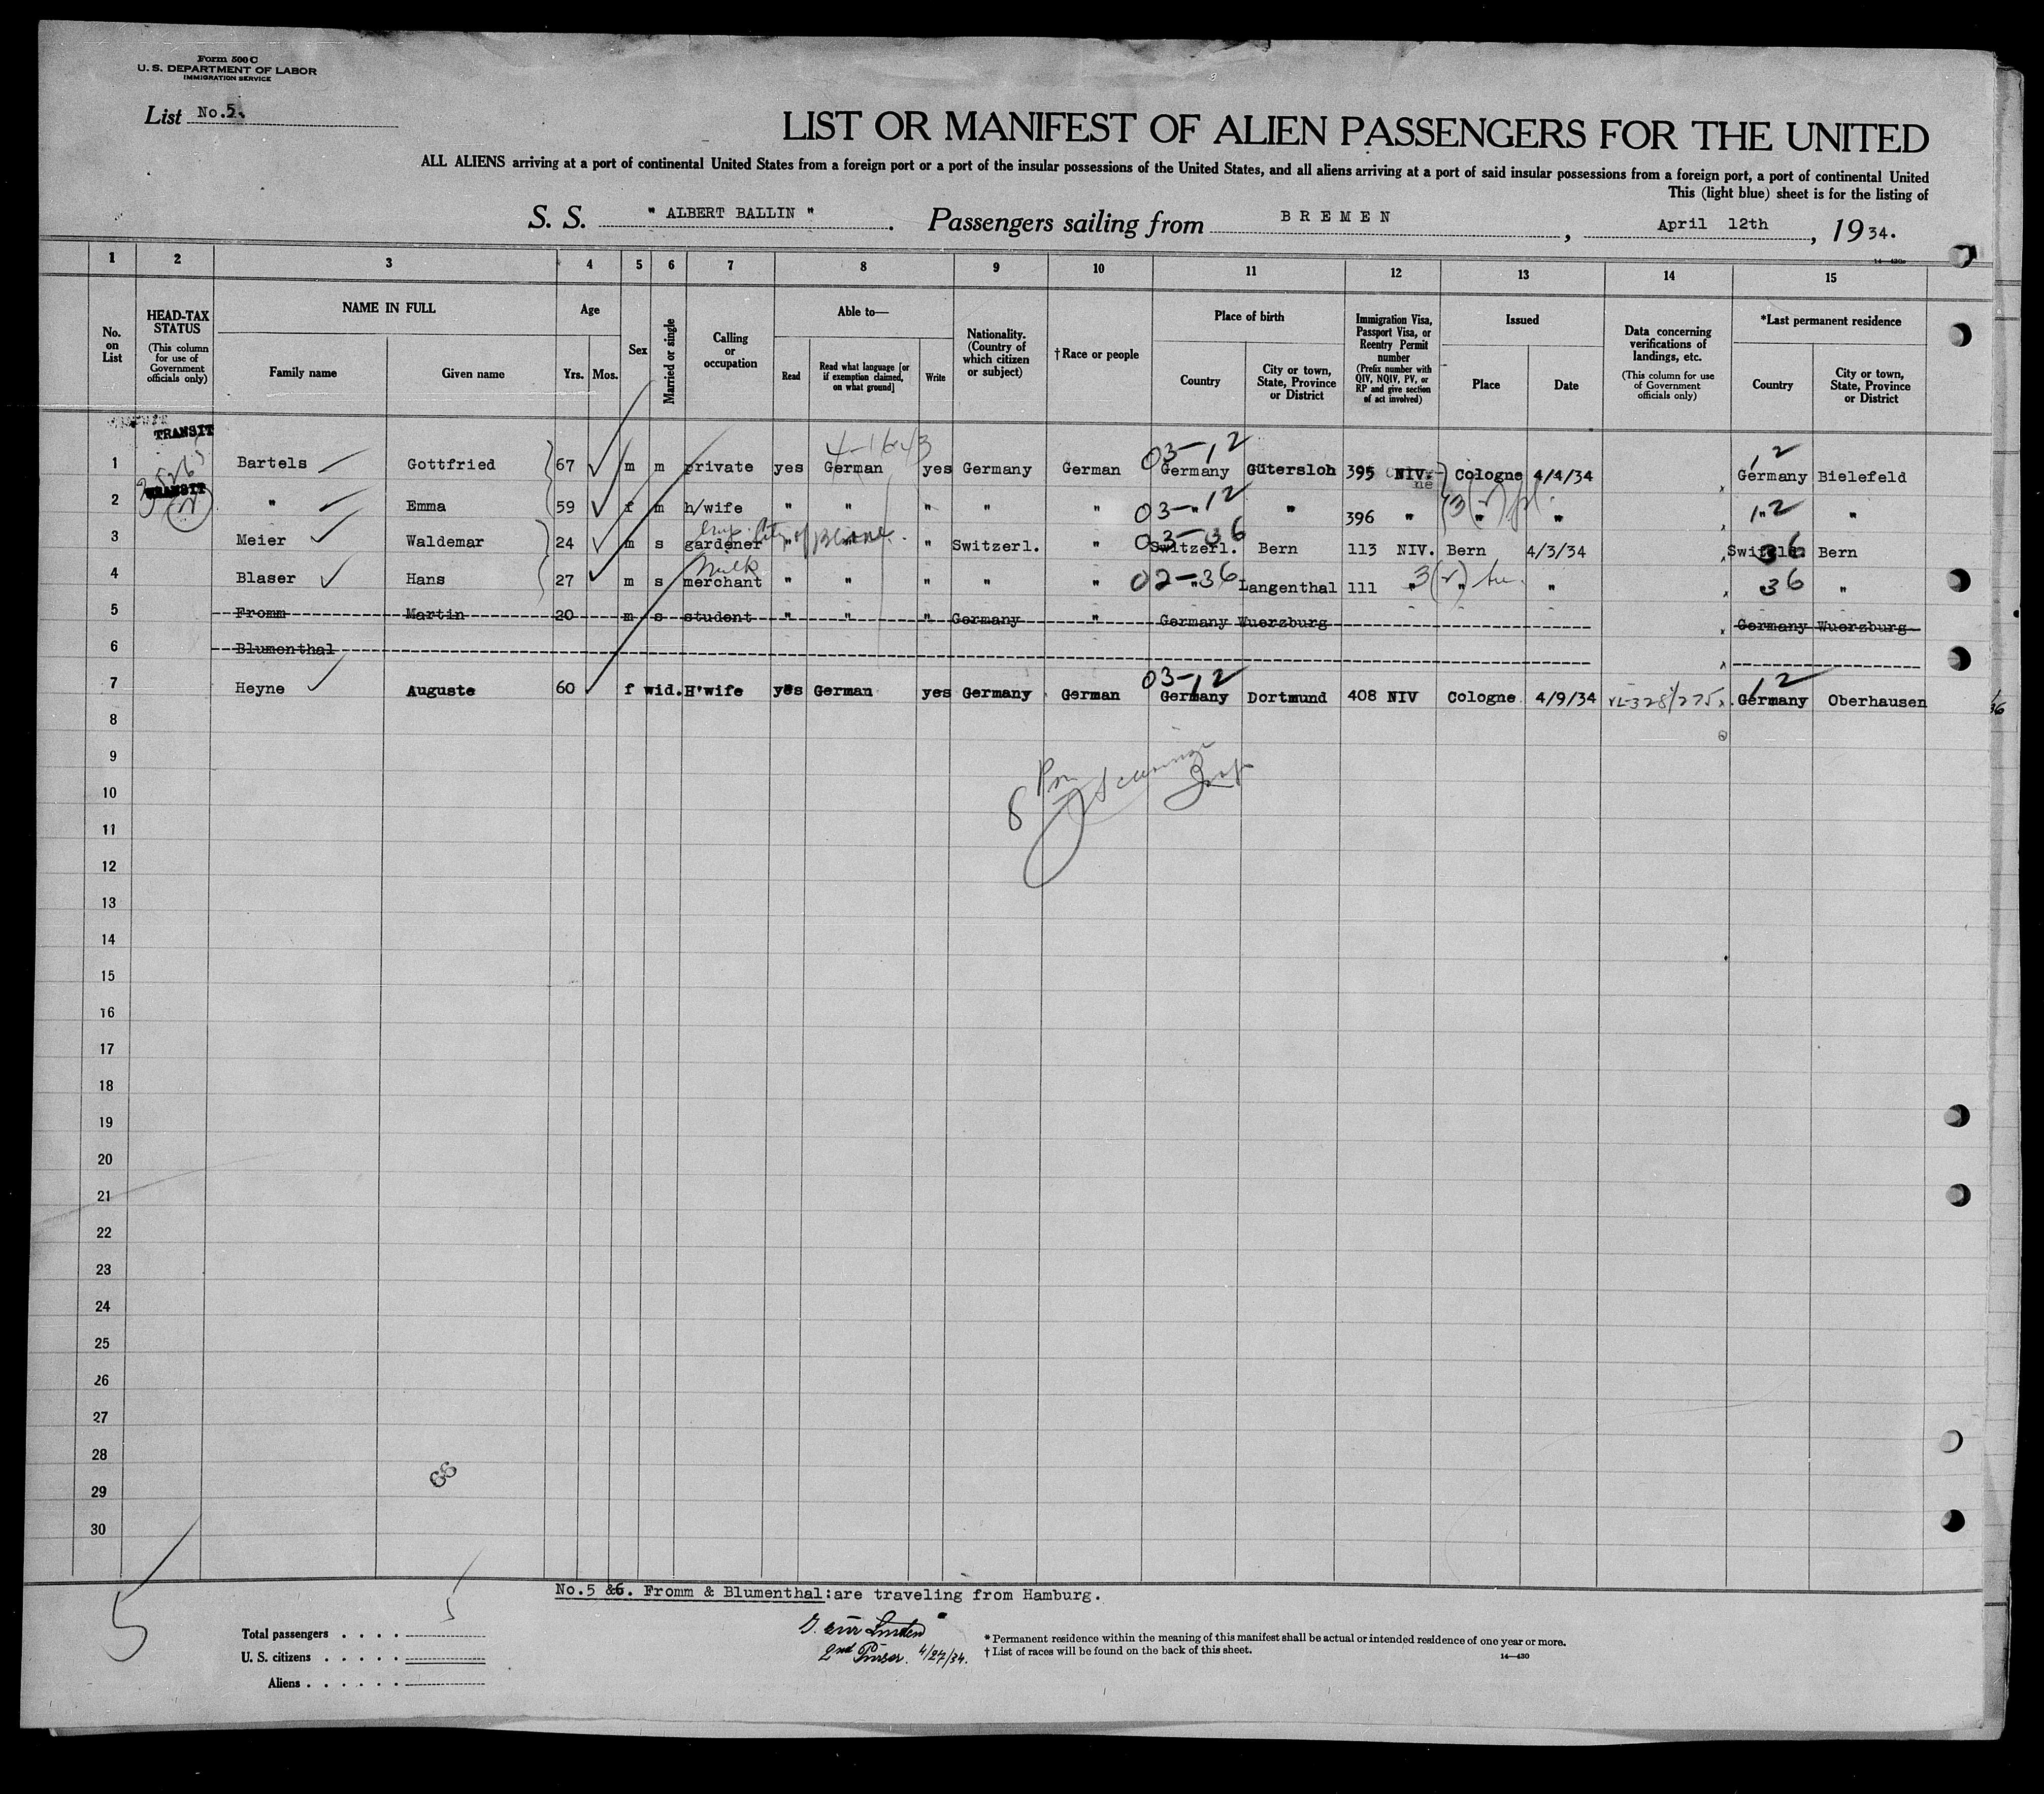 Form 500 C
U. S. DEPARTMENT OF LABOR
IMMIGRATION SERVICE
List No.5.
LIST OR MANIFEST OF ALIEN PASSENGERS FOR THE UNITED
ALL ALIENS arriving at a port of continental United States from a foreign port or a port of the insular possessions of the United States, and all aliens arriving at a port of said insular possessions from a foreign port, a port of continental United
This (light blue) sheet is for the listing of
S. S. " ALBERT BALLIN " . Passengers sailing from BREMEN , April 12th , 19 34.
14—430a
1 2 3 4 5 6 7 8 9 10 11 12 13 14 15
No. on List
HEAD-TAX STATUS (This column for use of Government officials only)
NAME IN FULL
Family name Given name
Age
Yrs. Mos.
Sex
Married or single
Calling or occupation
Able to—
Read Read what language [or if exemption claimed, on what ground] Write
Nationality. (Country of which citizen or subject)
†Race or people
Place of birth
Country City or town, State, Province or District
Immigration Visa, Passport Visa, or Reentry Permit number (Prefix number with QIV, NQIV, PV, or RP and give section of act involved)
Issued
Place Date
Data concerning verifications of landings, etc. (This column for use of Government officials only)
*Last permanent residence
Country City or town, State, Province or District
TRANSIT
4-1643 03-12 12
1 Bartels Gottfried 67 m m private yes German yes German​y German Germany Gütersloh 395 NIV. Cologne 4/4/34 Germany Bielefeld
TRANSIT
2 " Emma 59 f m h/wife " " " " " 03-12 " " 396 " " " 12 " "
3 Meier Waldemar 24 m s gardener " " " Switzerl. " 03-36 Switzerl. Bern 113 NIV. Bern 4/3/34 Switzerl. 36 Bern
Milk
4 Blaser Hans 27 m s merchant " " " " " 02-36 " Langenthal 111 " 3 " " " 36 "
5 Fromm Martin 20 m s student " " " Germany " Germany Wuerzburg Germany Wuerzburg
6 Blumenthal
03-12 12
7 Heyne Auguste 60 f wid. H'wife yes German yes Germany German Germany Dortmund 408 NIV Cologne 4/9/34 Germany Oberhausen
8
9
10
11
12
13
14
15
16
17
18
19
20
21
22
23
24
25
26
27
28
29
30
66
5
No.5 &6. Fromm & Blumenthal:are traveling from Hamburg.
Total passengers . . . .
U. S. citizens . . . . .
Aliens . . . . . .
2nd Purser. 4/27/34.
* Permanent residence within the meaning of this manifest shall be actual or intended residence of one year or more.
† List of races will be found on the back of this sheet.
14—430